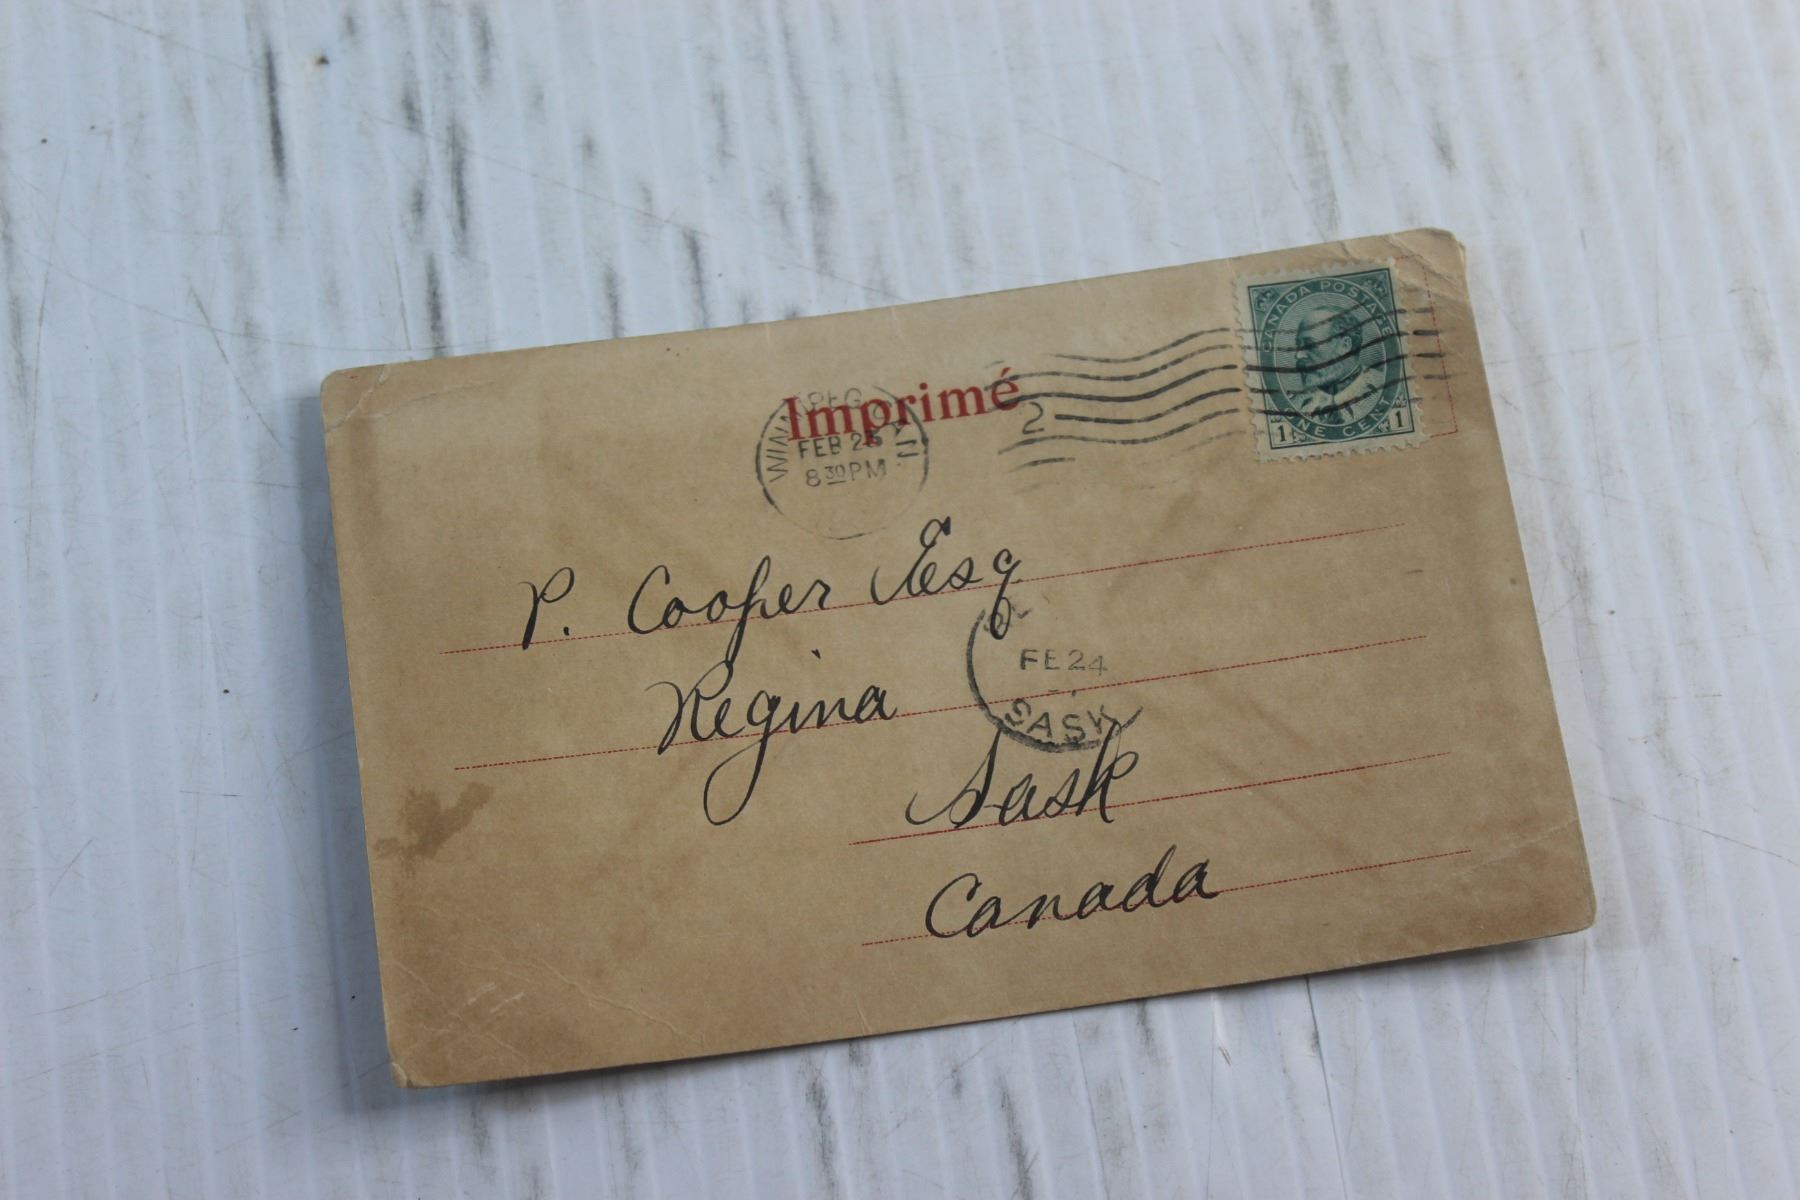 CANADA POSTAGE
ONE CENT
1 1
Imprimé
WINNIPEG MAN.
FEB 23
8 30 PM
2
P. Cooper Esq
FE 24
SASK
Regina
Sask
Canada